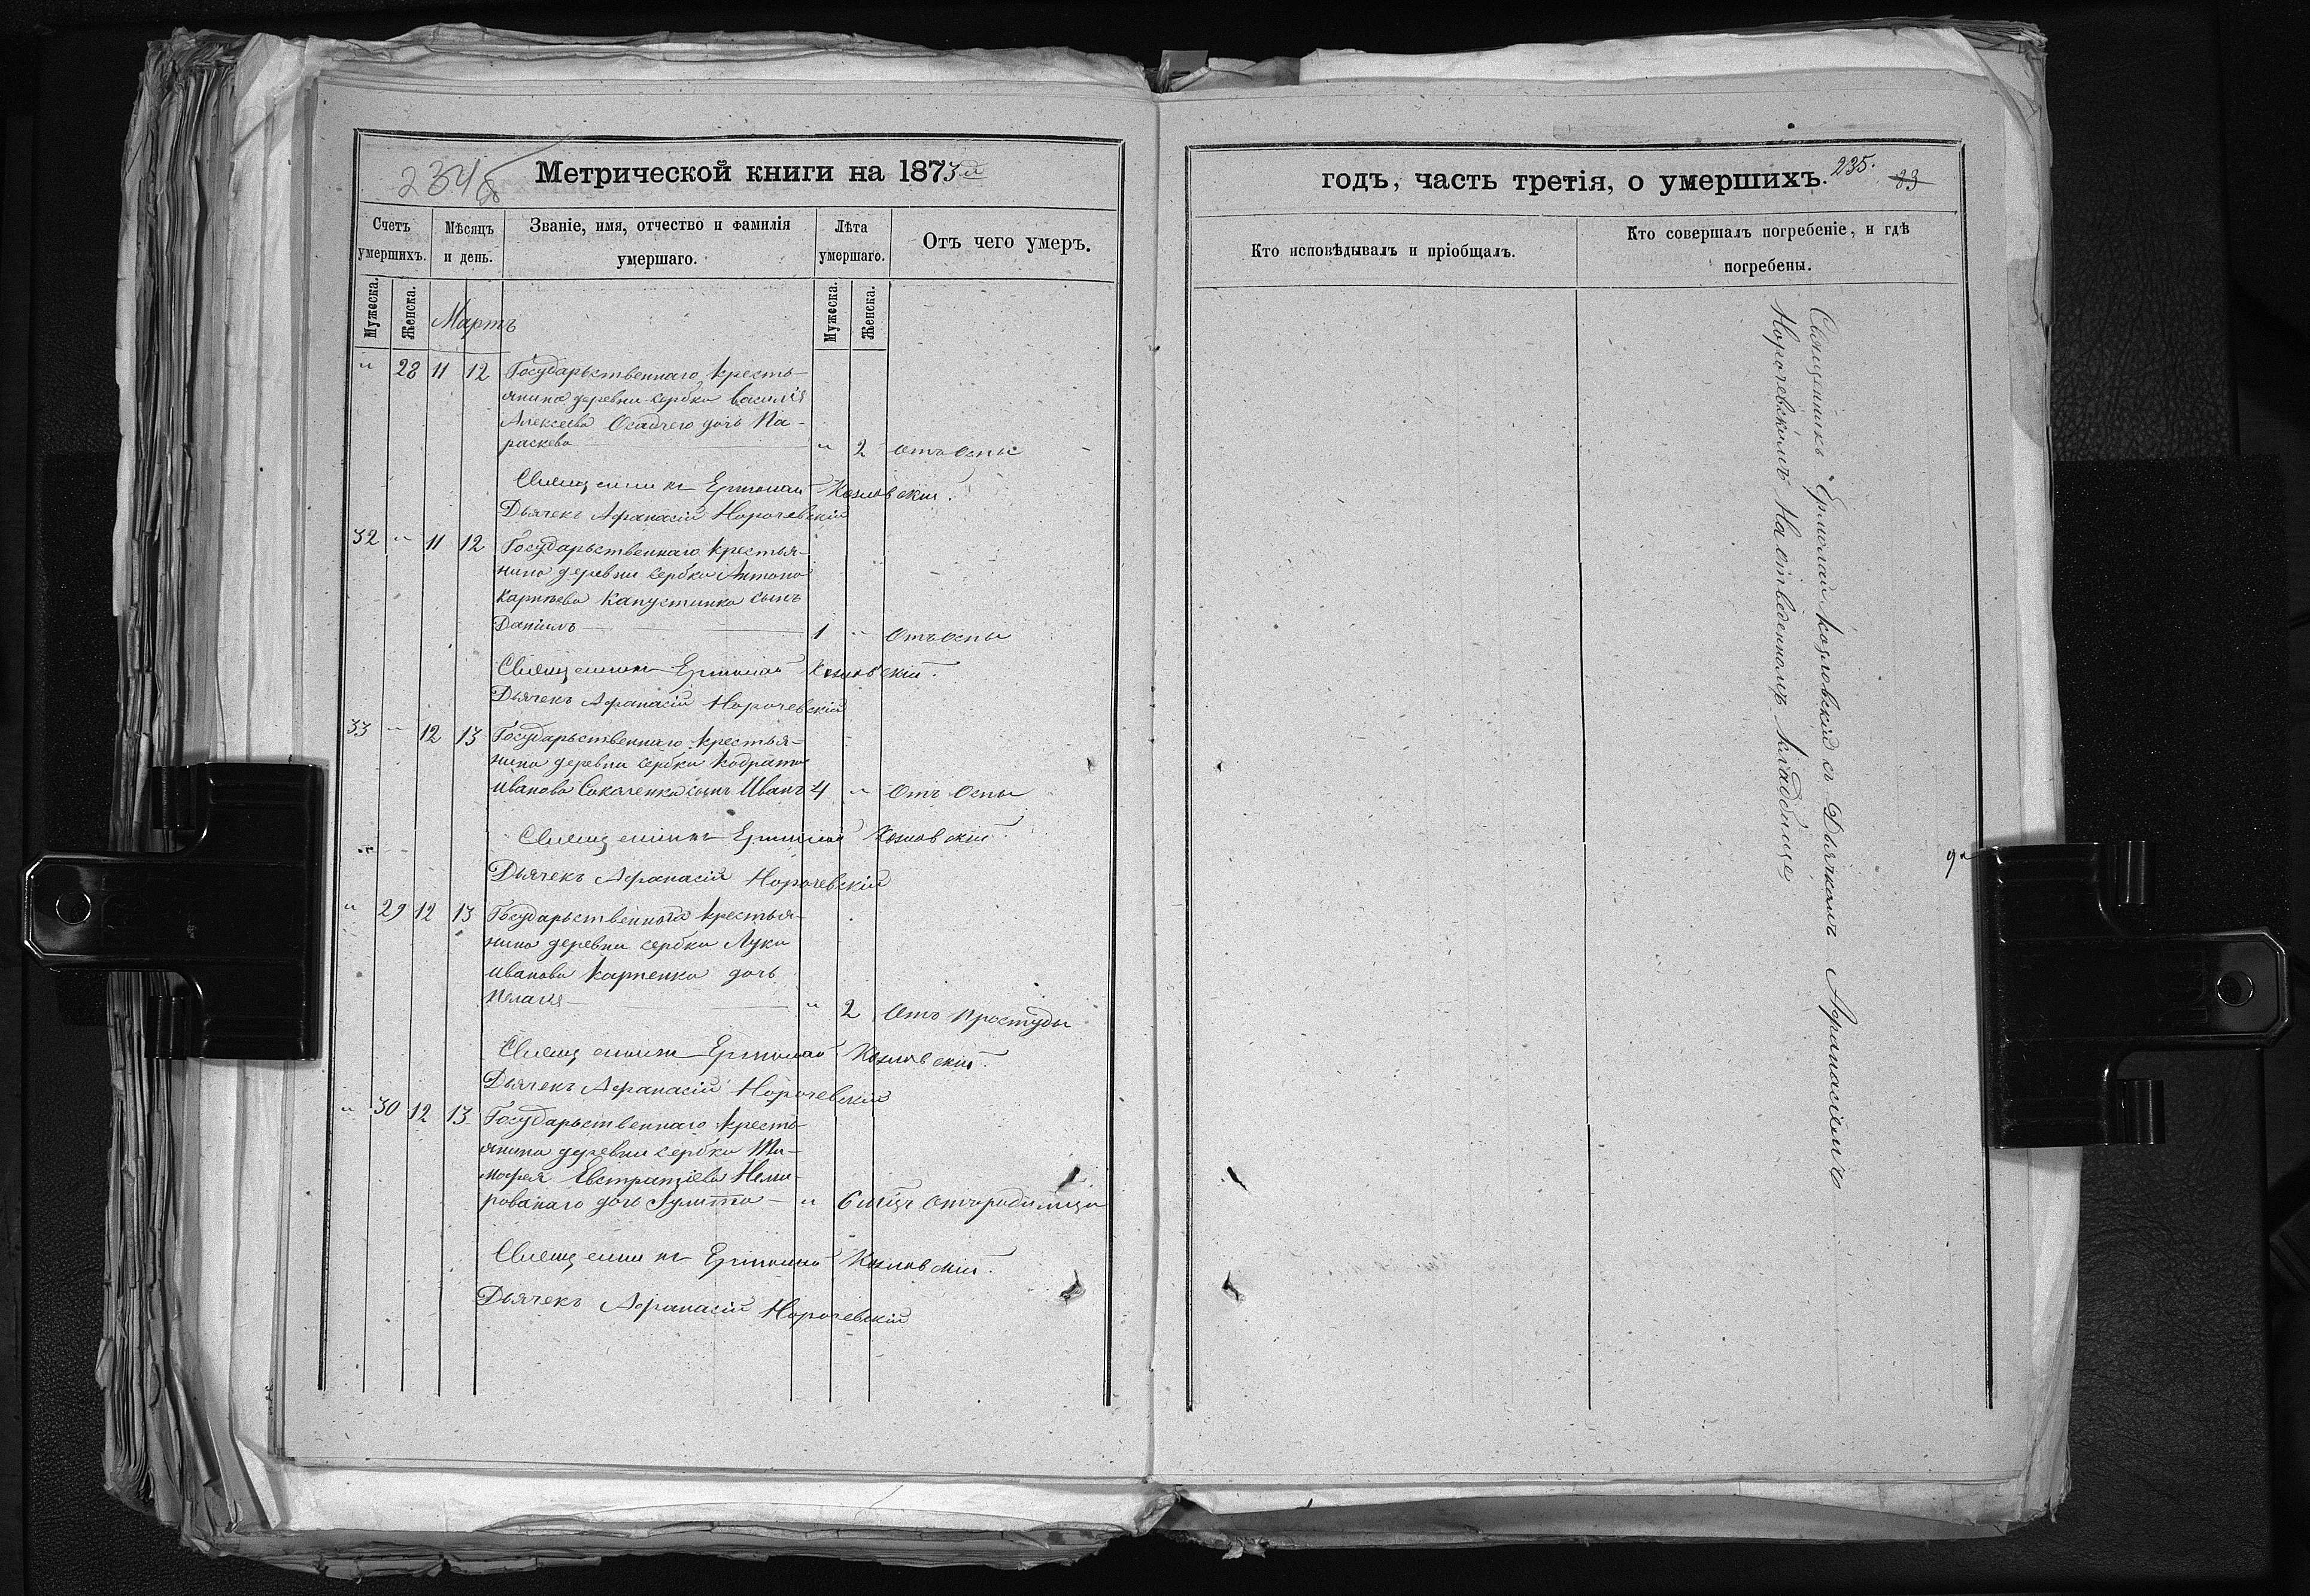 234 б
Метрической книги на 1873й
Счетъ умершихъ.
Мѣсяцъ и день.
Званіе, имя, отчество и фамилія умершаго.
Лѣта умершаго.
Отъ чего умеръ.
Мужеска.
Женска.
Мартъ
Мужеска.
Женска.
" 28 11 12 Государьственнаго кресть-
янина деревни сербки Василія
Алексеева Осадчего дочь Па-
раскева " 2 отъ оспы
Священникъ Ермолай Козловскій.
Дьячекъ Афанасій Норочевскій
32 " 11 12 Государьственнаго крестья-
нина деревни сербки Антона
Карпѣева Капустинка сынъ
Даніилъ 1 " Отъ оспы
Священникъ Ермолай Козловскій.
Дьячекъ Афанасій Норочевскій
33 " 12 13 Государьственнаго крестья-
нина деревни сербки Кодрата
Иванова Сокаченка сынъ Иванъ 4 " Отъ Оспы
Священникъ Ермолай Козловскій.
Дьячекъ Афанасій Норочевскій
" 29 12 13 Государьственнаго крестья-
нина деревни сербки Луки
Иванова Карпенка дочь
Пелагія " 2 Отъ простуды
Священникъ Ермолай Козловскій.
Дьячекъ Афанасій Норочевскій
" 30 12 13 Государьственнаго кресть-
янина деревни сербки Ти-
мофея Евстратіева Неми-
рованаго дочь Гулитта " 6 мѣцъ Отъ родимца
Священникъ Ермолай Козловскій.
Дьячекъ Афанасій Норочевскій
годъ, часть третія, о умершихъ. 235. 83
Кто исповѣдывалъ и пріобщалъ.
Кто совершалъ погребеніе, и гдѣ погребены.
Священникъ Ермолай Козловскій съ Дьячкомъ Афанасіемъ
Норочевскимъ На отведенномъ кладбище